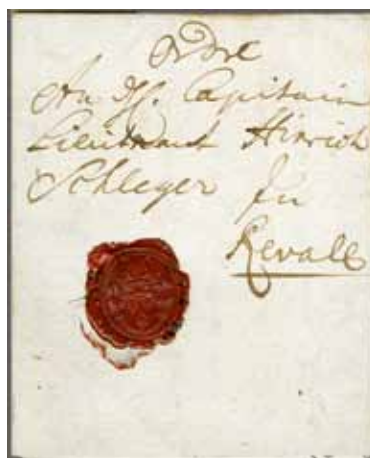 Ordre
An Hf. Capitain
Lieutnant Hinrich
Schleyer in
Revall